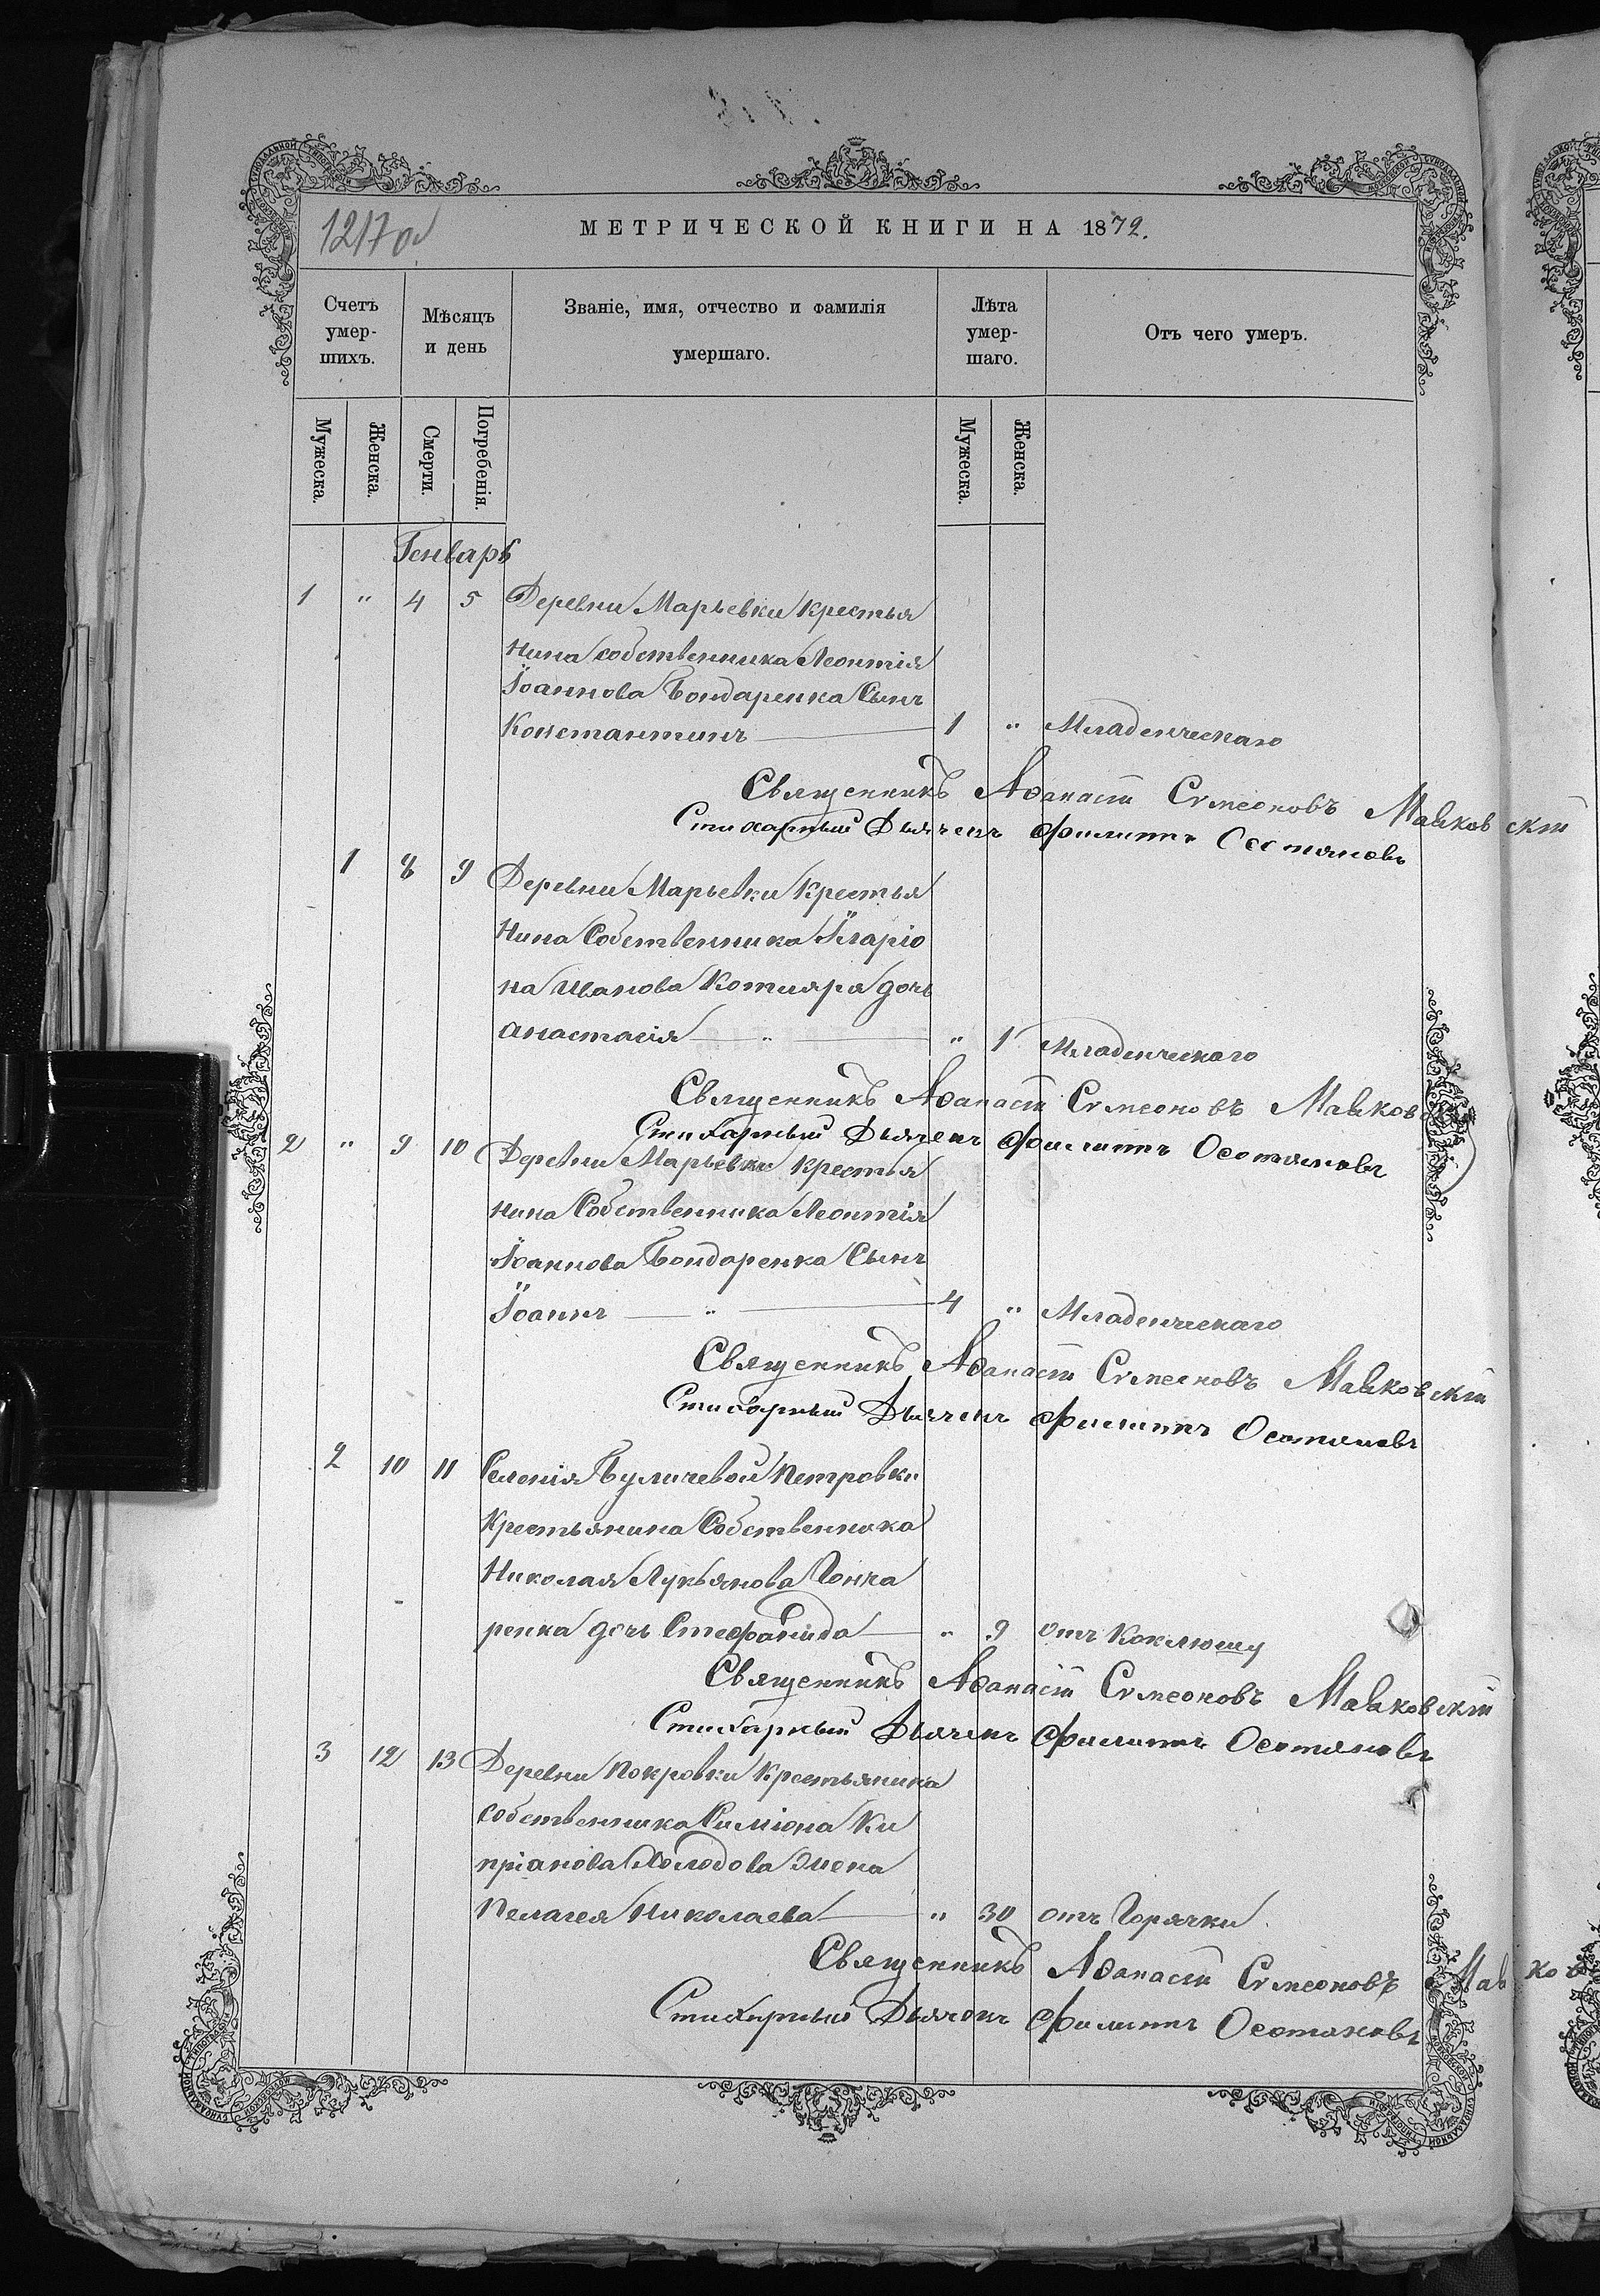 1217 об
МЕТРИЧЕСКОЙ КНИГИ НА 1872.
Счетъ умер-шихъ.
Мѣсяцъ и день
Званіе, имя, отчество и фамилія умершаго.
Лѣта умер-шаго.
Отъ чего умеръ.
Мужеска.
Женска.
Смерти.
Погребенія.
Мужеска.
Женска.
Генварь
1 " 4 5 Деревни Марьевки крестья
нина собственника Леонтія
Іоаннова Бондаренка Сынъ
Константинъ 1 " Младенческаго
Священникъ Аѳанасій Сѵмеоновъ Маѧковскій
Стихарный Дьячекъ Филиппъ Остяновъ
1 8 9 Деревни Марьевки Крестья
нина Собственника Иларіо
на Иванова Котляра дочь
Анастасія " " 1 Младенческаго
Священникъ Аѳанасій Сѵмеоновъ
Стихарный Дьячекъ Филиппъ
2 " 9 10 Деревни Марьевки Крестья
нина Собственника Леонтія
Іоаннова Бондаренка Сынъ
Іоаннъ " 4 " Младенческаго
Священникъ Аѳанасій Сѵмеоновъ
Стихарный Дьячекъ Филиппъ
2 10 11 Селенія Буличевой Петровки
Крестьянина Собственника
Николая Лукьянова Гонча
ренка дочь Стефанида " 9 отъ Коклюшу
Священникъ Аѳанасій Сѵмеоновъ
Стихарный Дьячекъ Филиппъ
3 12 13 Деревни Покровки Крестьянина
собственника Симіона Ки
пріанова Холодова жена
Пелагея Николаева " 30 отъ Горячки
Священникъ Аѳанасій Сѵмеоновъ
Стихарный Дьячекъ Филиппъ